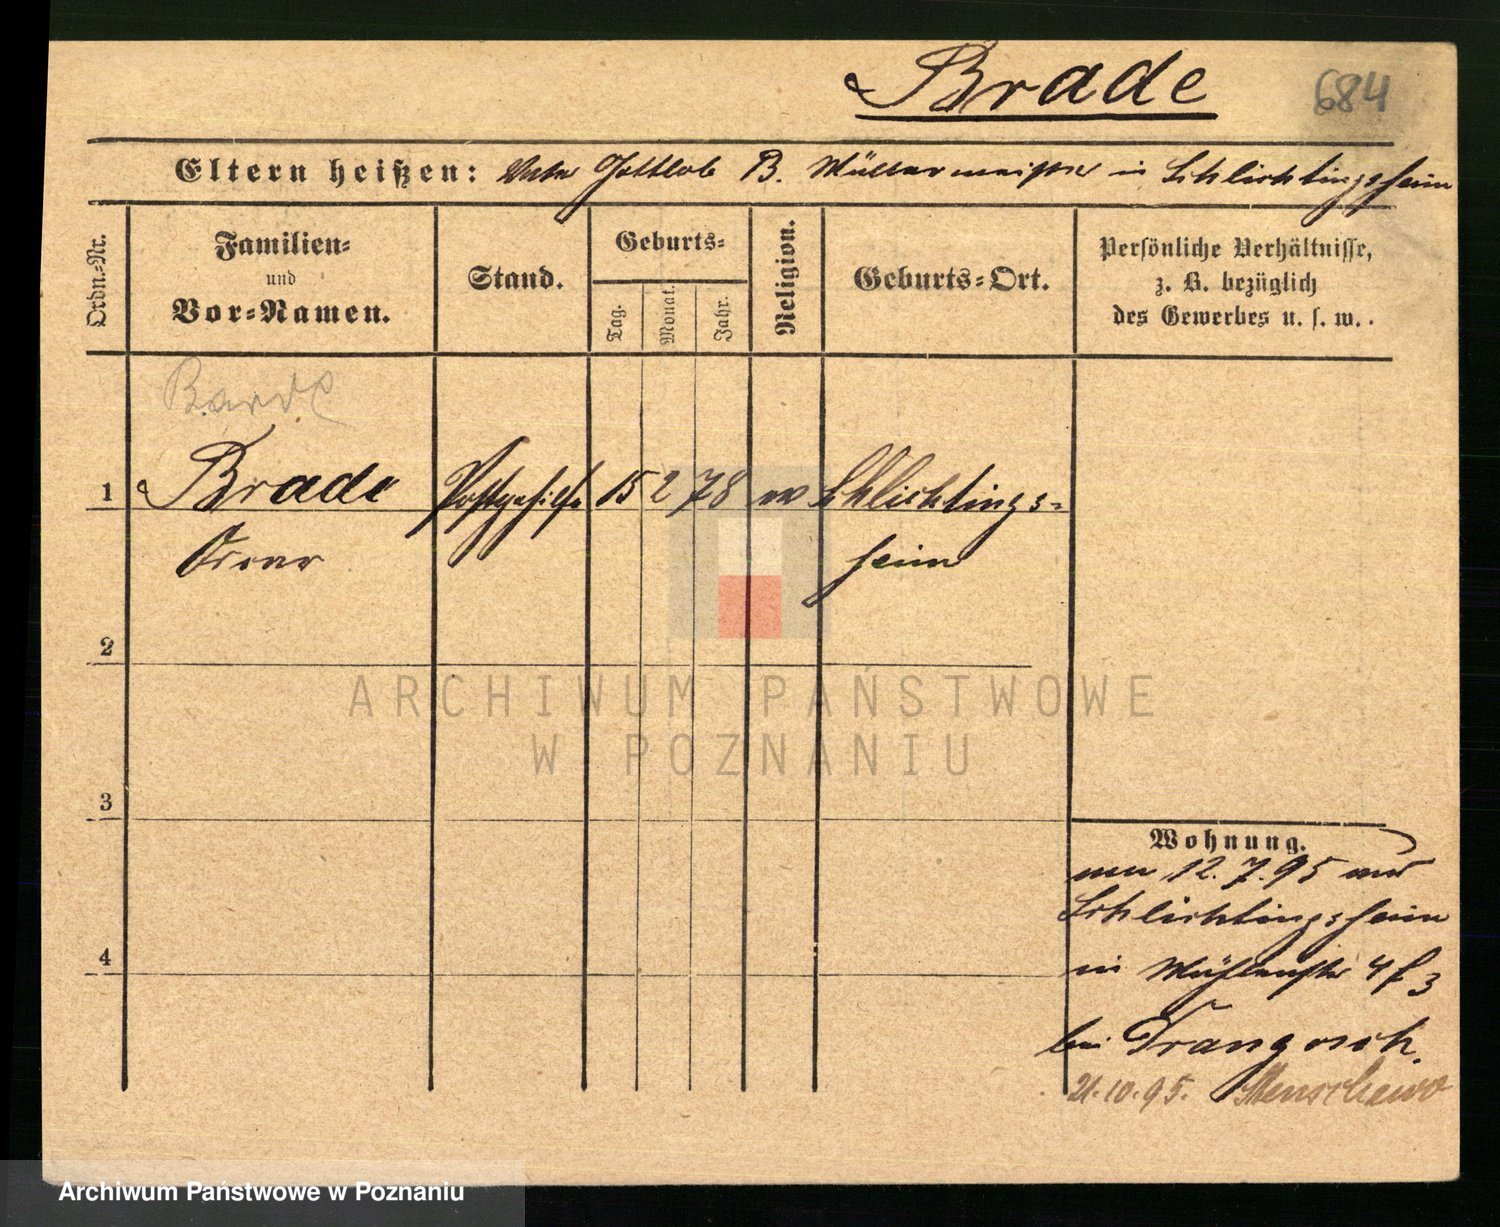 Brade
684
Eltern heißen: Vater Gottlob B. Müllermeister in Schlichtingsheim
Ordn.-Nr.
Familien-
und
Vor-Namen.
Stand.
Geburts-
Tag.
Monat.
Jahr.
Religion.
Geburts-Ort.
Persönliche Verhältnisse,
z. B. bezüglich
des Gewerbes u. s. w.
Barde
1 Brade Postgehilfe 15 2 78 ev Schlichtings-
Oscar heim
2
ARCHIWUM PAŃSTWOWE
W POZNANIU
3
Wohnung.
12.7.95 aus
Schlichtingsheim
4
in Mühlenstr 4
bei
21.10.95.
Archiwum Państwowe w Poznaniu